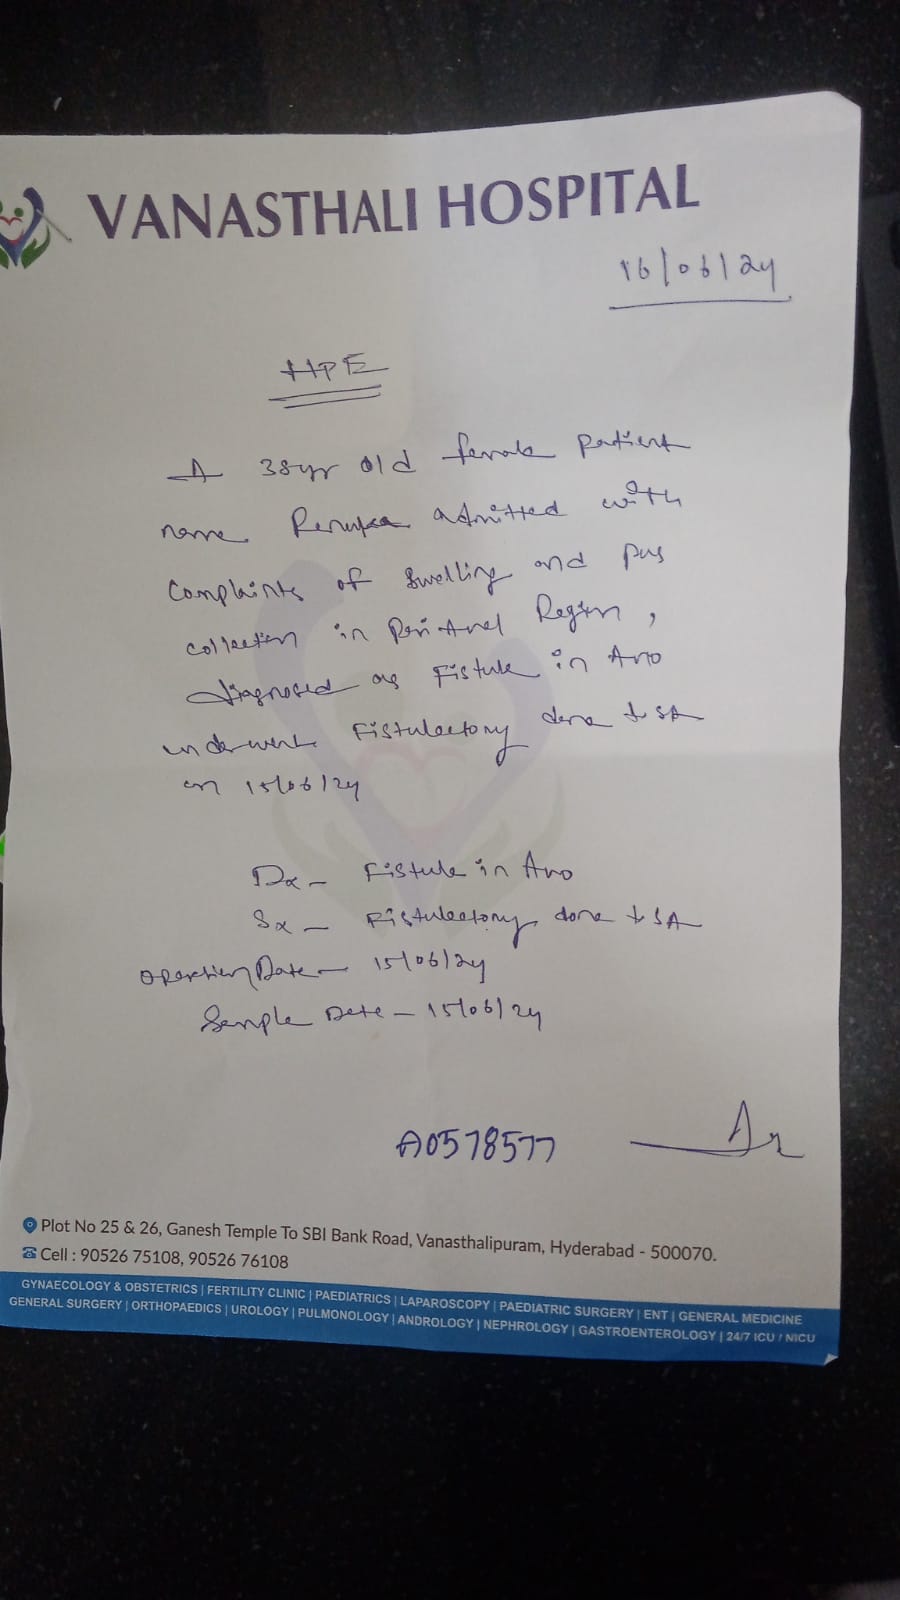 VANASTHALI HOSPITAL
16/06/24
HPE
A 38yr old female patient
name Renuka admitted with
Complaints of swelling and pus
collection in Peri Anal Region,
diagnosed as Fistula in Ano
underwent Fistulectomy done ↓ SA
on 15/06/24
Dx - Fistula in Ano
Sx - Fistulectomy done ↓ SA
Operation Date - 15/06/24
Sample Date - 15/06/24
A0578577
Plot No 25 & 26, Ganesh Temple To SBI Bank Road, Vanasthalipuram, Hyderabad - 500070.
Cell : 90526 75108, 90526 76108
GYNAECOLOGY & OBSTETRICS | FERTILITY CLINIC | PAEDIATRICS | LAPAROSCOPY | PAEDIATRIC SURGERY | ENT | GENERAL MEDICINE
GENERAL SURGERY | ORTHOPAEDICS | UROLOGY | PULMONOLOGY | ANDROLOGY | NEPHROLOGY | GASTROENTEROLOGY | 24/7 ICU / NICU